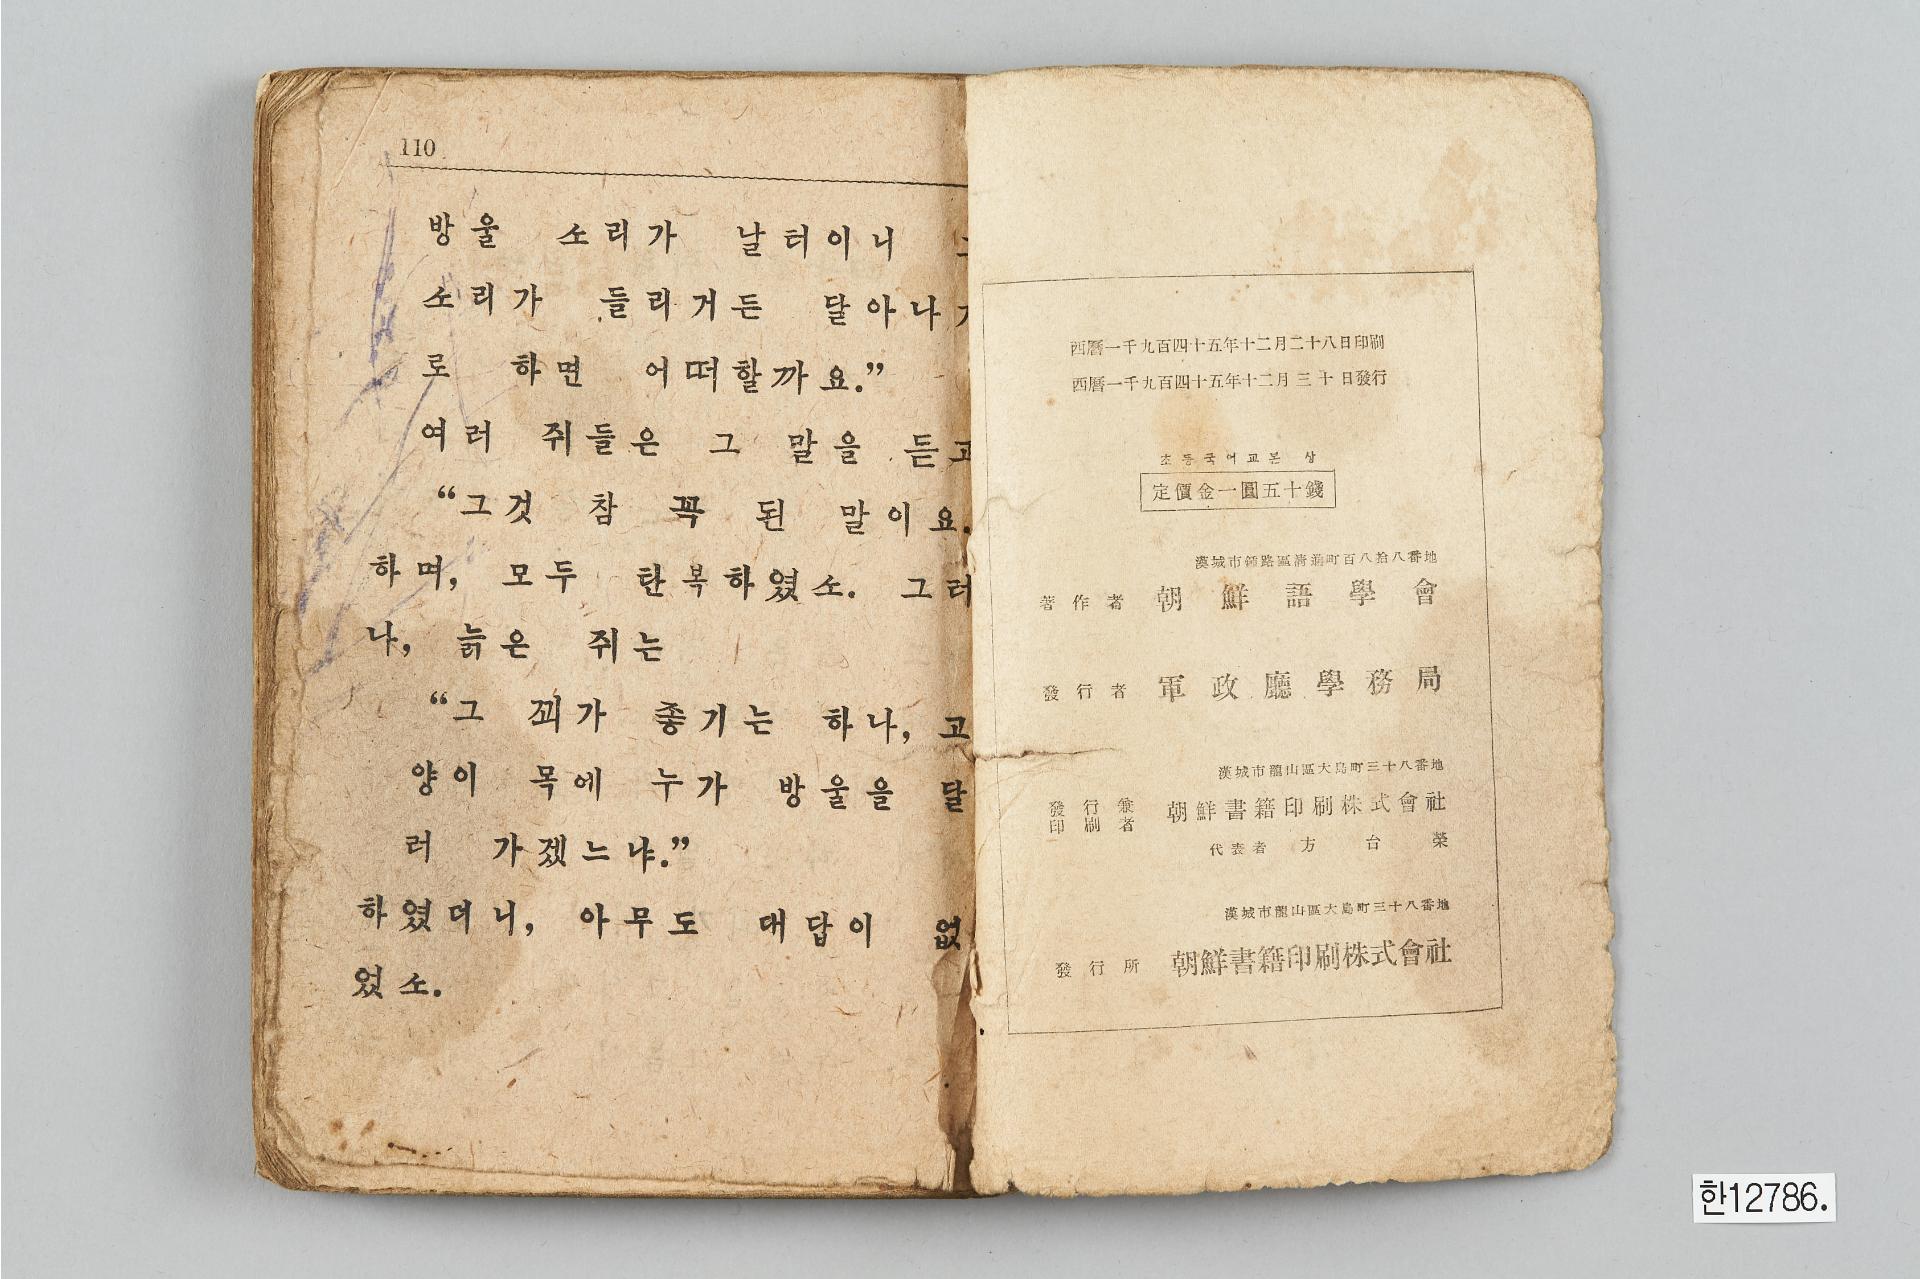 110
방울 소리가 날터이니
소리가 들리거든 달아나
로 하면 어떠할까요.”
여러 쥐들은 그 말을 듣고
“그것 참 꼭 된 말이요.
하며, 모두 탄복하였소. 그러
나, 늙은 쥐는
“그 꾀가 좋기는 하나, 고
양이 목에 누가 방울을 달
러 가겠느냐.”
하였더니, 아무도 대답이 없
었소.
西曆一千九百四十五年十二月二十八日印刷
西曆一千九百四十五年十二月三十日發行
초등국어교본 상
定價金一圓五十錢
漢城市鍾路區淸進町百八拾八番地
著作者 朝鮮語學會
發行者 軍政廳學務局
漢城市龍山區大島町三十八番地
發行兼印刷者 朝鮮書籍印刷株式會社
代表者 方台榮
漢城市龍山區大島町三十八番地
發行所 朝鮮書籍印刷株式會社
한12786.